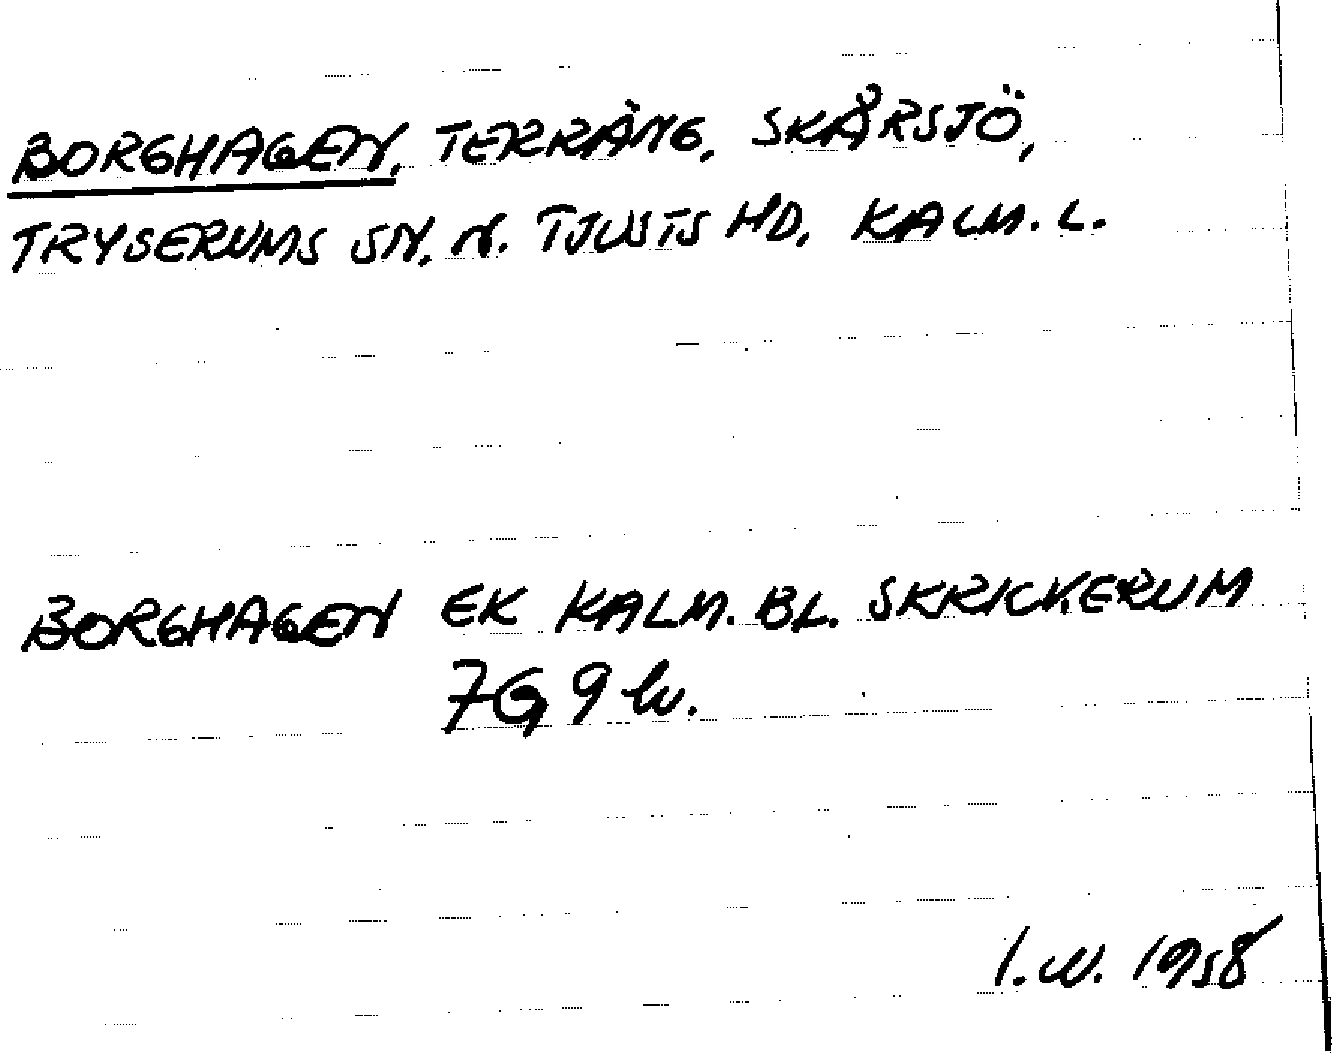 BORGHAGEN, TERRÄNG, SKÅRSJÖ,
TRYSERUMS SN. N. TJUSTS HD. KALM. L.
BORGHAGEN EK KALM. BL. SKRICKERUM
7G 9
I. W. 1958